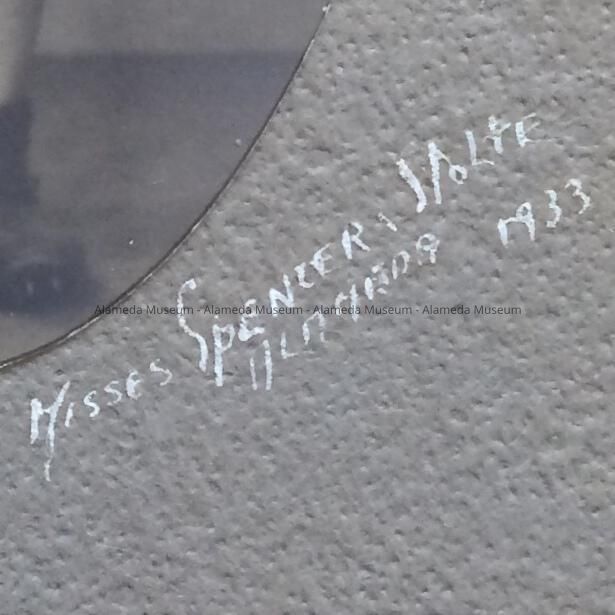 MISSES SPENCER, WOLFE
ALAMEDA 1933
Alameda Museum - Alameda Museum - Alameda Museum - Alameda Museum